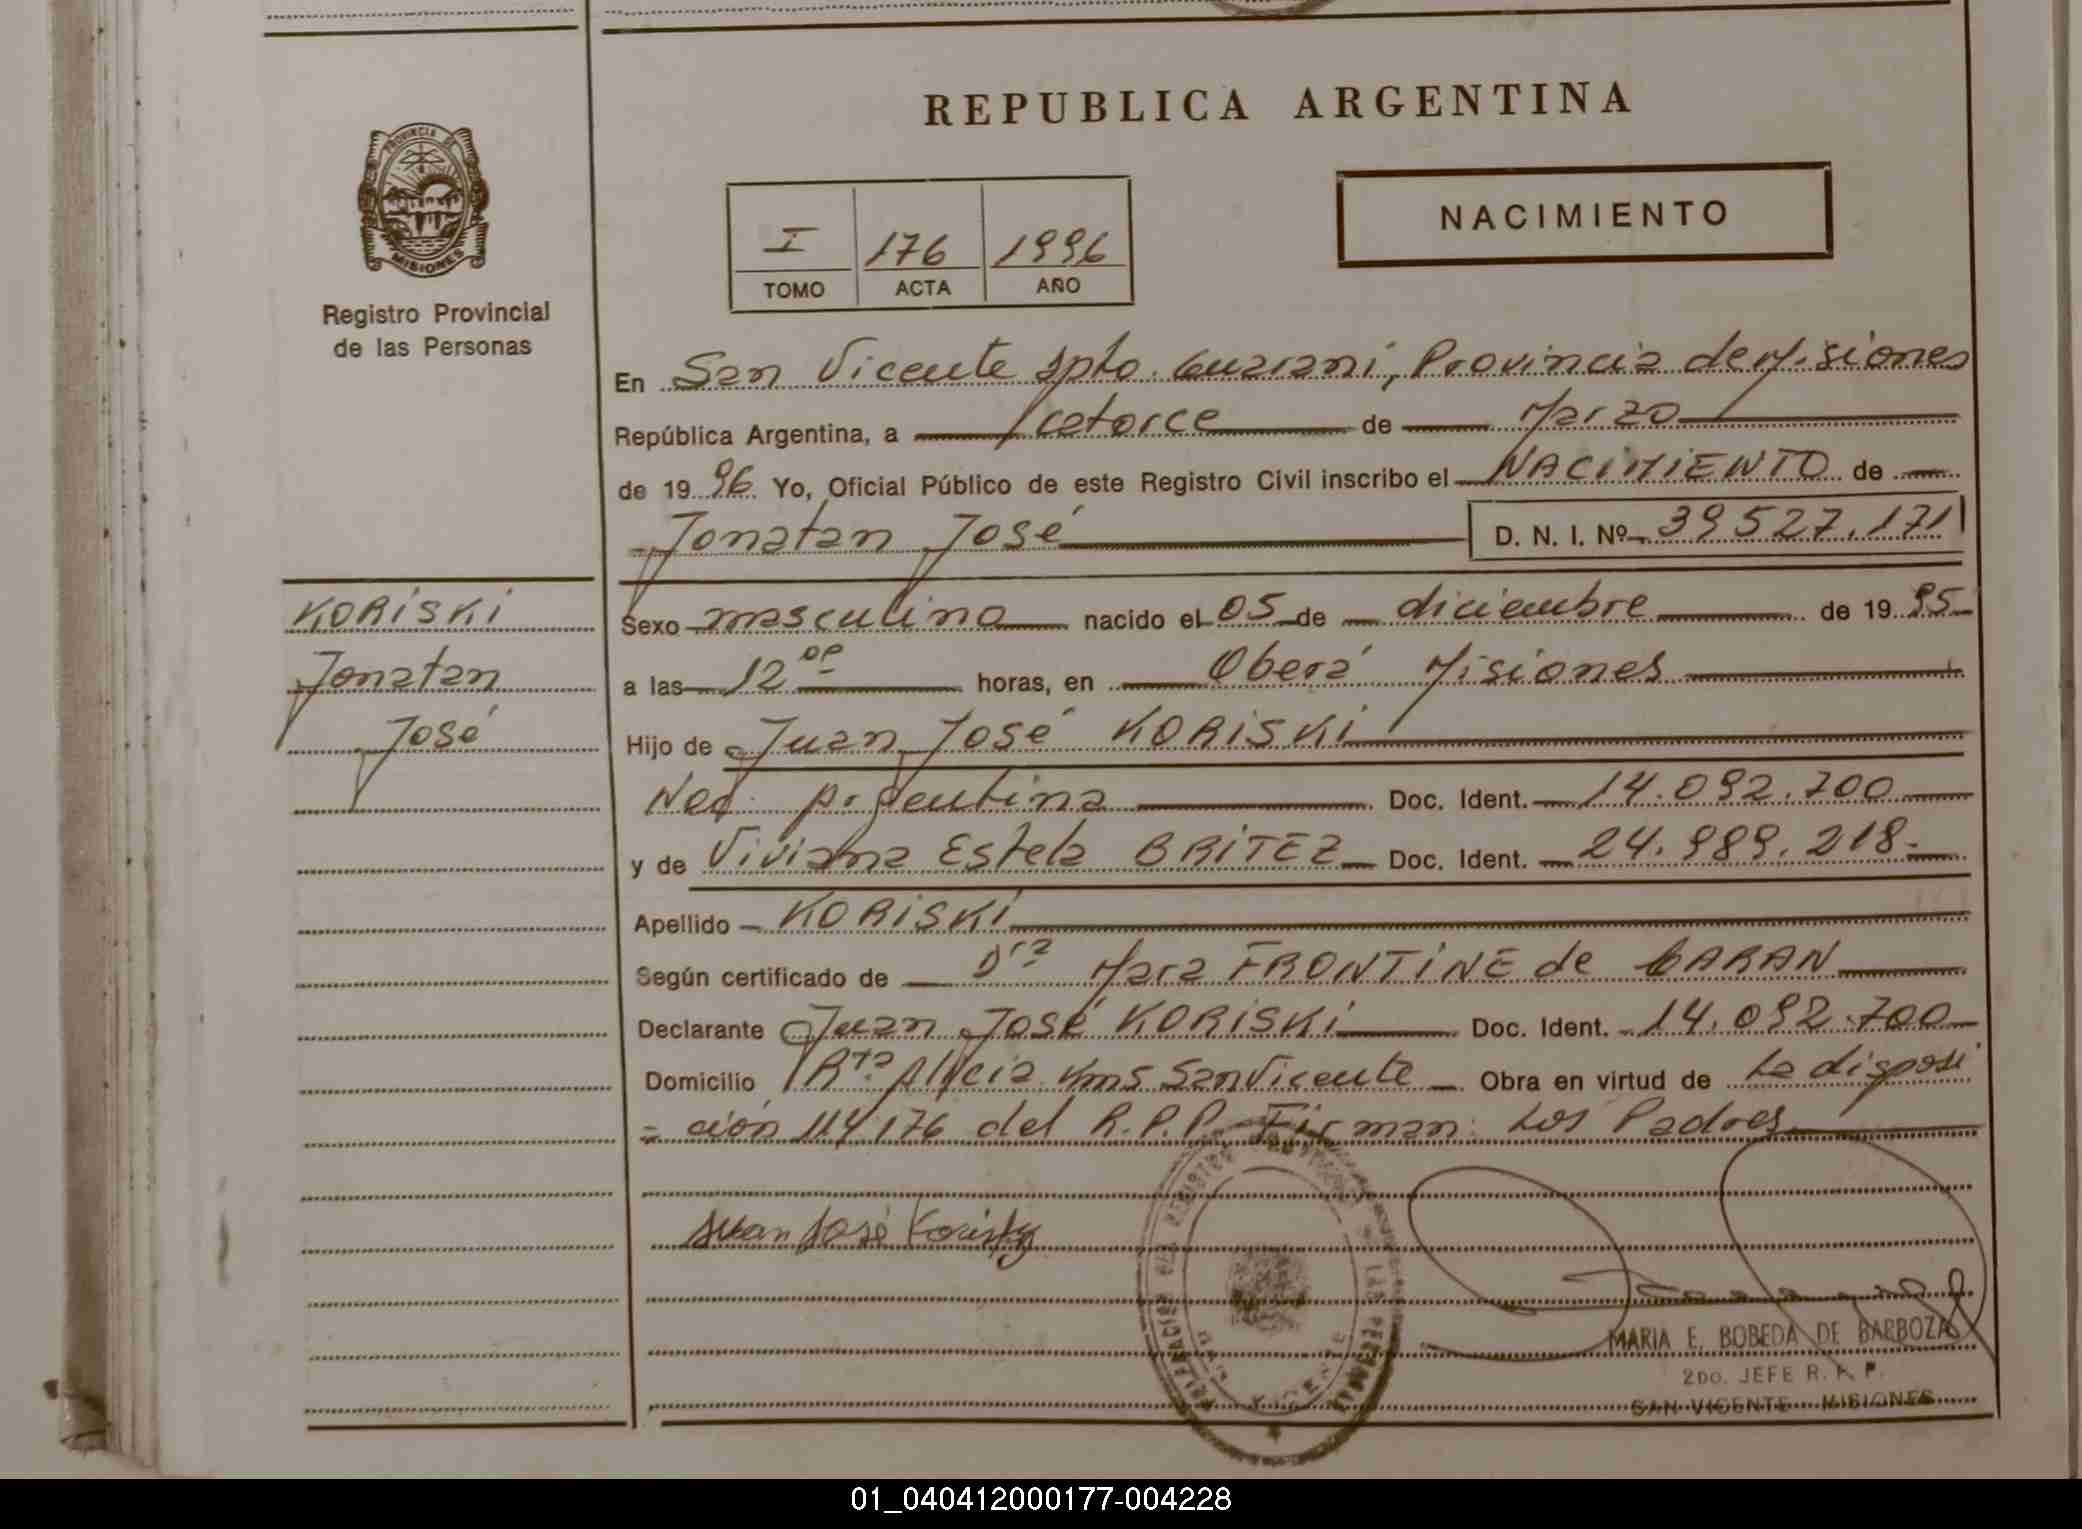 PROVINCIA DE
MISIONES
Registro Provincial
de las Personas
KORISKI
Jonatan
José
REPUBLICA ARGENTINA
NACIMIENTO
I 176 1996
TOMO ACTA AÑO
En San Vicente Dpto. Guaraní, Provincia de Misiones
República Argentina, a catorce de Marzo
de 1996 Yo, Oficial Público de este Registro Civil inscribo el NACIMIENTO de
Jonatan José D. N. I. Nº 39527.171
Sexo masculino nacido el 05 de diciembre de 1995
a las 12 horas, en Oberá Misiones
Hijo de Juan José KORISKI
Nac. Argentina Doc. Ident. 14.092.700
y de Viviana Estela BRITEZ Doc. Ident. 24.989.218-
Apellido KORISKI
Según certificado de Dra Mara FRONTINE de
Declarante Juan José KORISKI Doc. Ident. 14.092.700
Domicilio Alicia Km5 San Vicente Obra en virtud de La disposi
- ción 114/76 del R.P.P. Firman: Los Padres
Juan José Korisky
VICENTE
MARIA E. BOBEDA DE BARBOZA
2DO. JEFE R. P. P.
SAN VICENTE - MISIONES
01_040412000177-004228